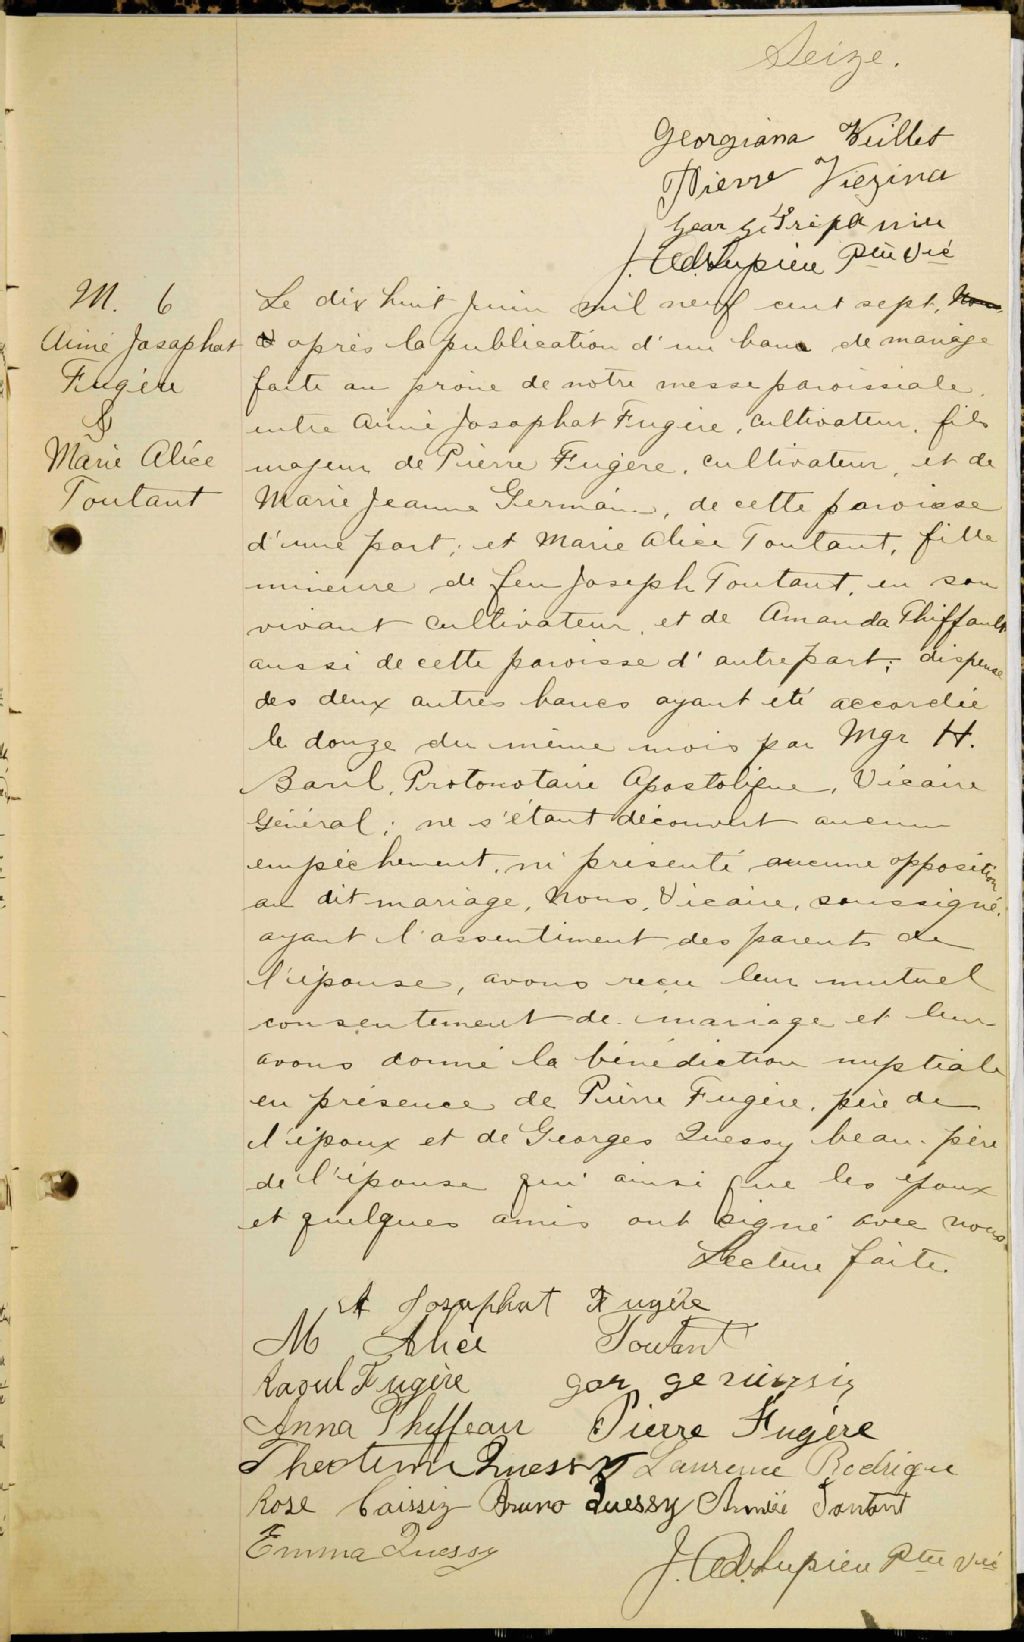 Seize.
Georgiana Veillet
Pierre Viezina
J. Ad. Lupien Ptre Vic
M. 6
Aimé Josaphat
Fugère
&
Marie Alice
Toutant
Le dix huit Juin mil neuf cent sept,
après la publication d'un banc de mariage
faite au prône de notre messe paroissiale
entre Aimé Josaphat Fugère, cultivateur, fils
majeur de Pierre Fugère, cultivateur, et de
Marie Jeanne Germain, de cette paroisse
d'une part; et Marie Alice Toutant, fille
mineure de feu Joseph Toutant, en son
vivant cultivateur, et de Amanda Thiffault
aussi de cette paroisse d'autre part; dispense
des deux autres bancs ayant été accordée
le douze du même mois par Mgr H.
Baril, Protonotaire Apostolique, Vicaire
Général; ne s'étant découvert aucun
empêchement, ni présenté aucune opposition
au dit mariage, Nous, Vicaire, soussigné,
ayant l'assentiment des parents de
l'épouse, avons reçu leur mutuel
consentement de mariage et leur
avons donné la bénédiction nuptiale
en présence de Pierre Fugère, père de
l'époux et de Georges Quessy beau-père
de l'épouse qui ainsi que les époux
et quelques amis ont signé avec nous.
Lecture faite.
A Josaphat Fugère
M Alice Toutant
Raoul Fugère
Anna Thiffeau Pierre Fugère
Quessy Laurence Rodrigue
Rose Bruno Quessy Aimée Toutant
Emma Quessy
J. Ad. Lupien Ptre Vic